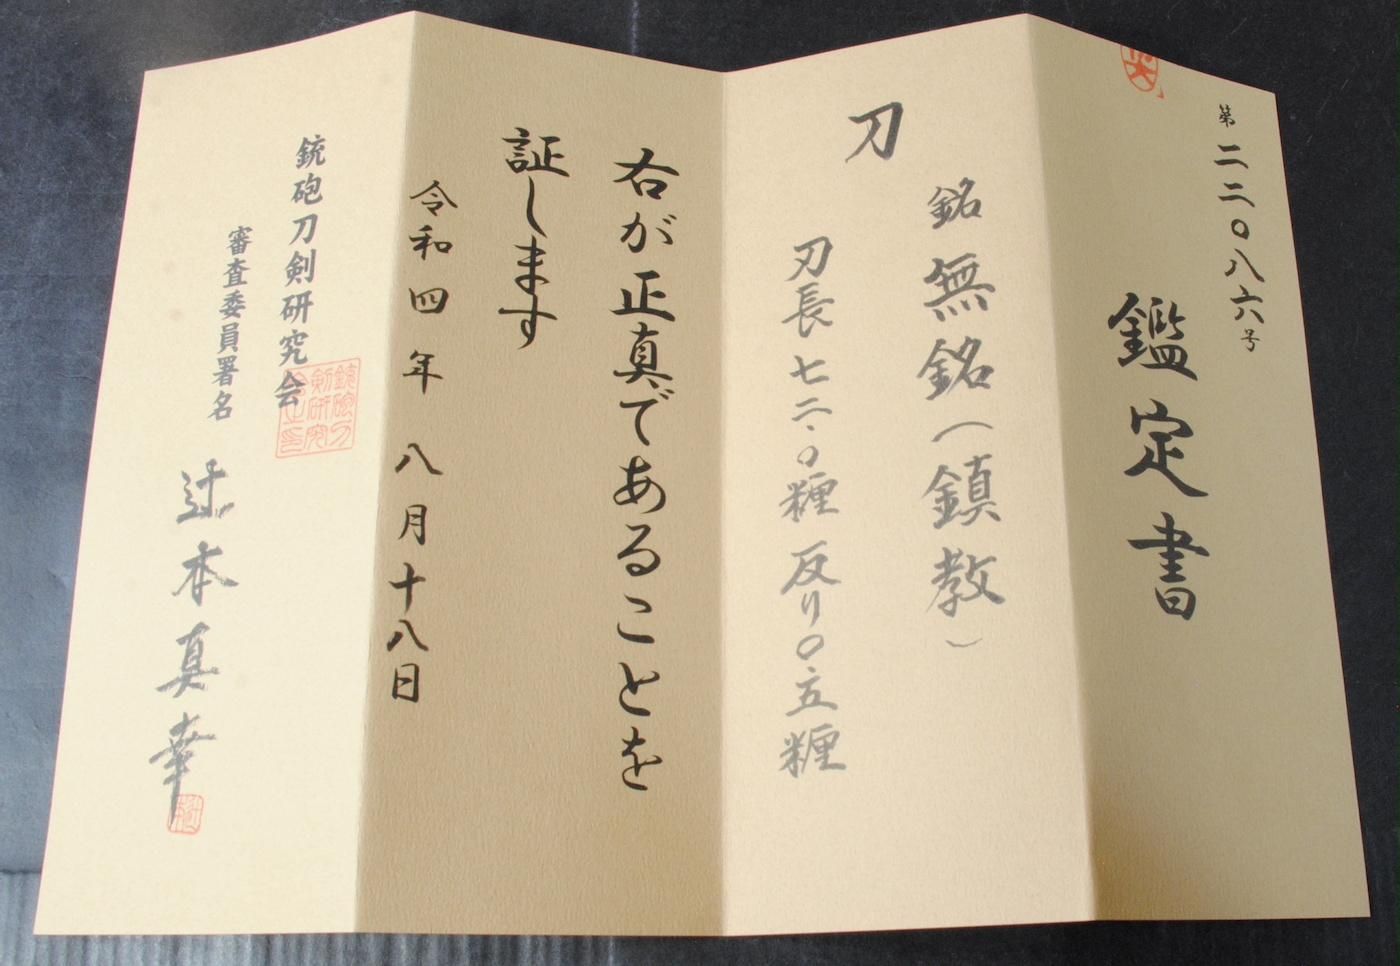 第二二〇八六号
鑑定書
刀
銘 無銘(鎮教)
刃長 七二.〇糎 反り〇.五糎
右が正真であることを
証します
令和四年 八月十八日
銃砲刀剣研究会
審査委員署名
辻本真幸